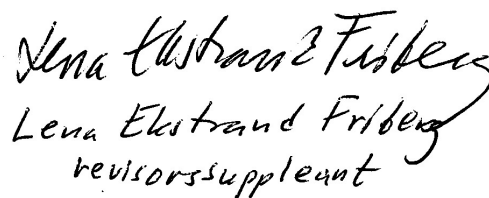 Lena Ekstrand Friberg
Lena Ekstrand Friberg
revisorssuppleant